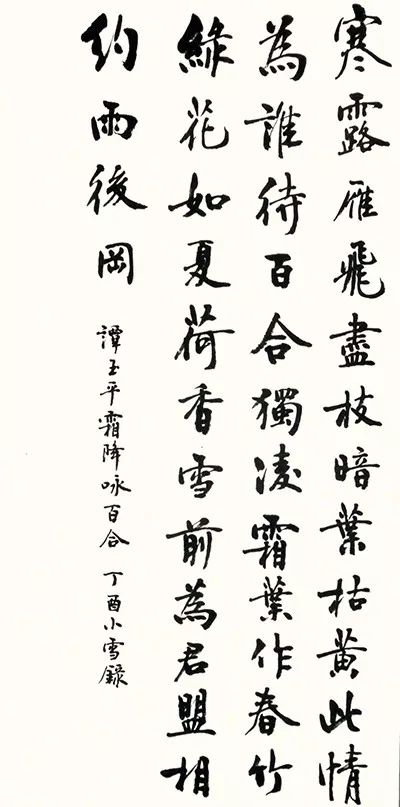 寒露雁飛盡枝暗葉枯黃此情
為誰待百合獨凌霜葉作春竹
綠花如夏荷香雪前為君盟相
約雨後岡
譚玉平霜降咏百合 丁酉小雪錄